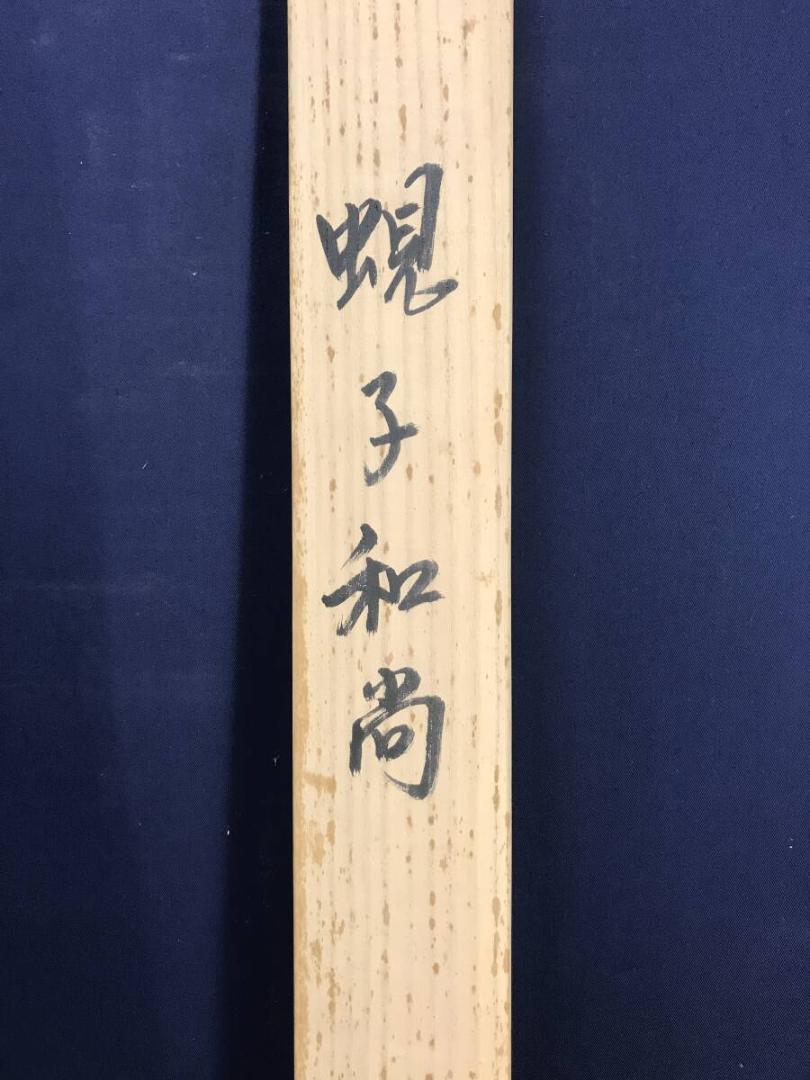 蜆子和尚